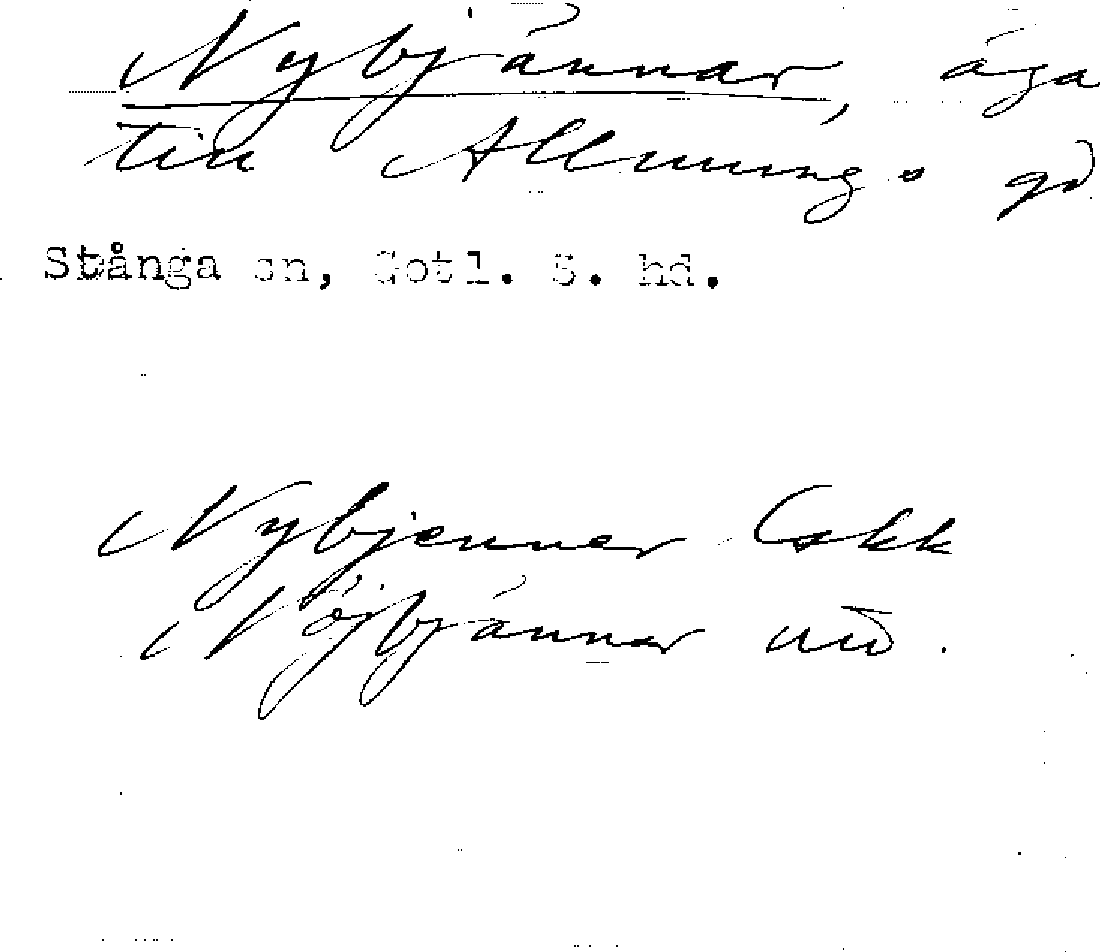 Nybjännar, äga
till Allmungs gd
Stånga sn, Gotl. S. hd.
Nybjenner Cskk
Nöjbjännar utt.